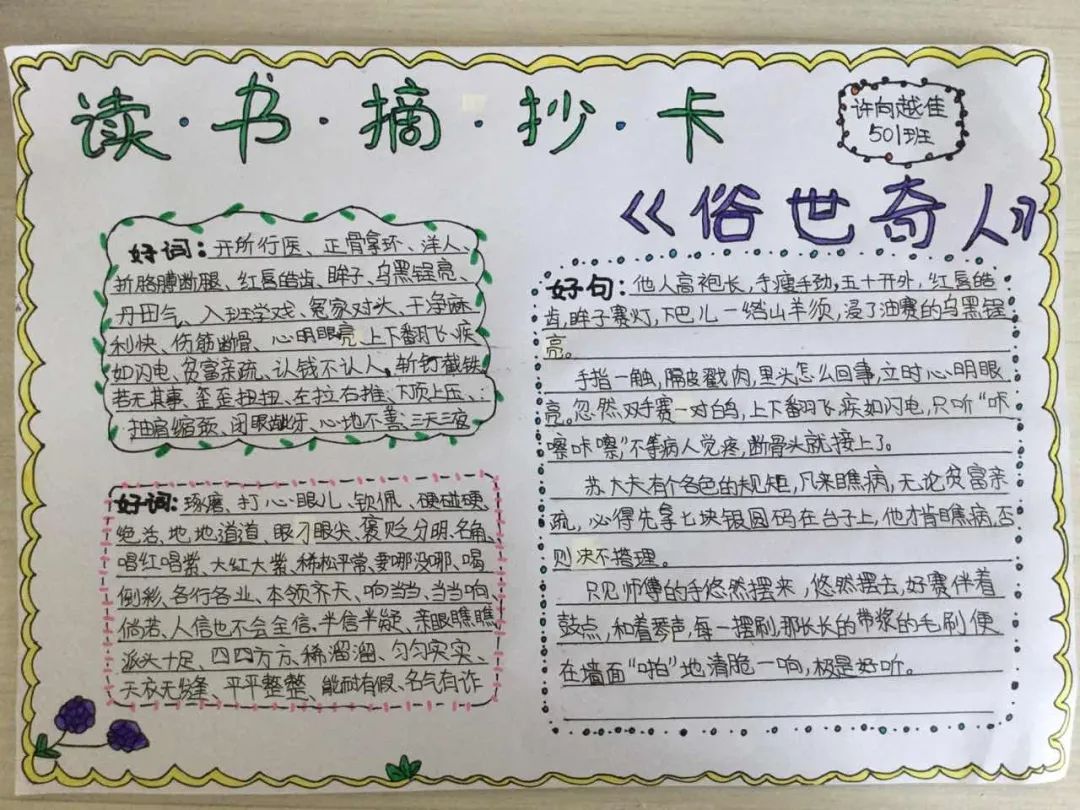 读·书·摘·抄·卡
许向越佳
501班
《俗世奇人》
好词：开所行医、正骨拿环、洋人、
折胳膊断腿、红唇皓齿、眸子、乌黑锃亮、
丹田气、入班学戏、冤家对头、干净麻
利快、伤筋断骨、心明眼亮、上下翻飞、疾
如闪电、贫富亲疏、认钱不认人、斩钉截铁
若无其事、歪歪扭扭、左拉右推、下顶上压、
抽肩缩颈、闭眼龇牙、心地不善、三天三夜
好词：琢磨、打心眼儿、钦佩、硬碰硬、
绝活、地地道道、眼刁眼尖、褒贬分明、名角、
唱红唱紫、大红大紫、稀松平常、要哪没哪、喝
倒彩、各行各业、本领齐天、响当当、当当响、
倘若、人信也不会全信、半信半疑、亲眼瞧瞧
派头十足、四四方方、稀溜溜、匀匀实实、
天衣无缝、平平整整、能耐有假、名气有诈
好句：他人高袍长，手瘦手动，五十开外，红唇皓
齿，眸子赛灯，下巴儿一绺山羊须，浸了油赛的乌黑锃
亮。
手指一触，隔皮戳肉，里头怎么回事，立时心明眼
亮。忽然双手赛一对白鸽，上下翻飞，疾如闪电，只听“咔
嚓咔嚓”，不等病人觉疼，断骨头就接上了。
苏大夫有个各色的规矩，凡来瞧病，无论贫富亲
疏，必得先拿七块银圆码在台子上，他才肯瞧病，否
则决不搭理。
只见师傅的手悠然摆来，悠然摆去，好赛伴着
鼓点，和着琴声，每一摆刷，那长长的带浆的毛刷便
在墙面“啪”地清脆一响，极是好听。